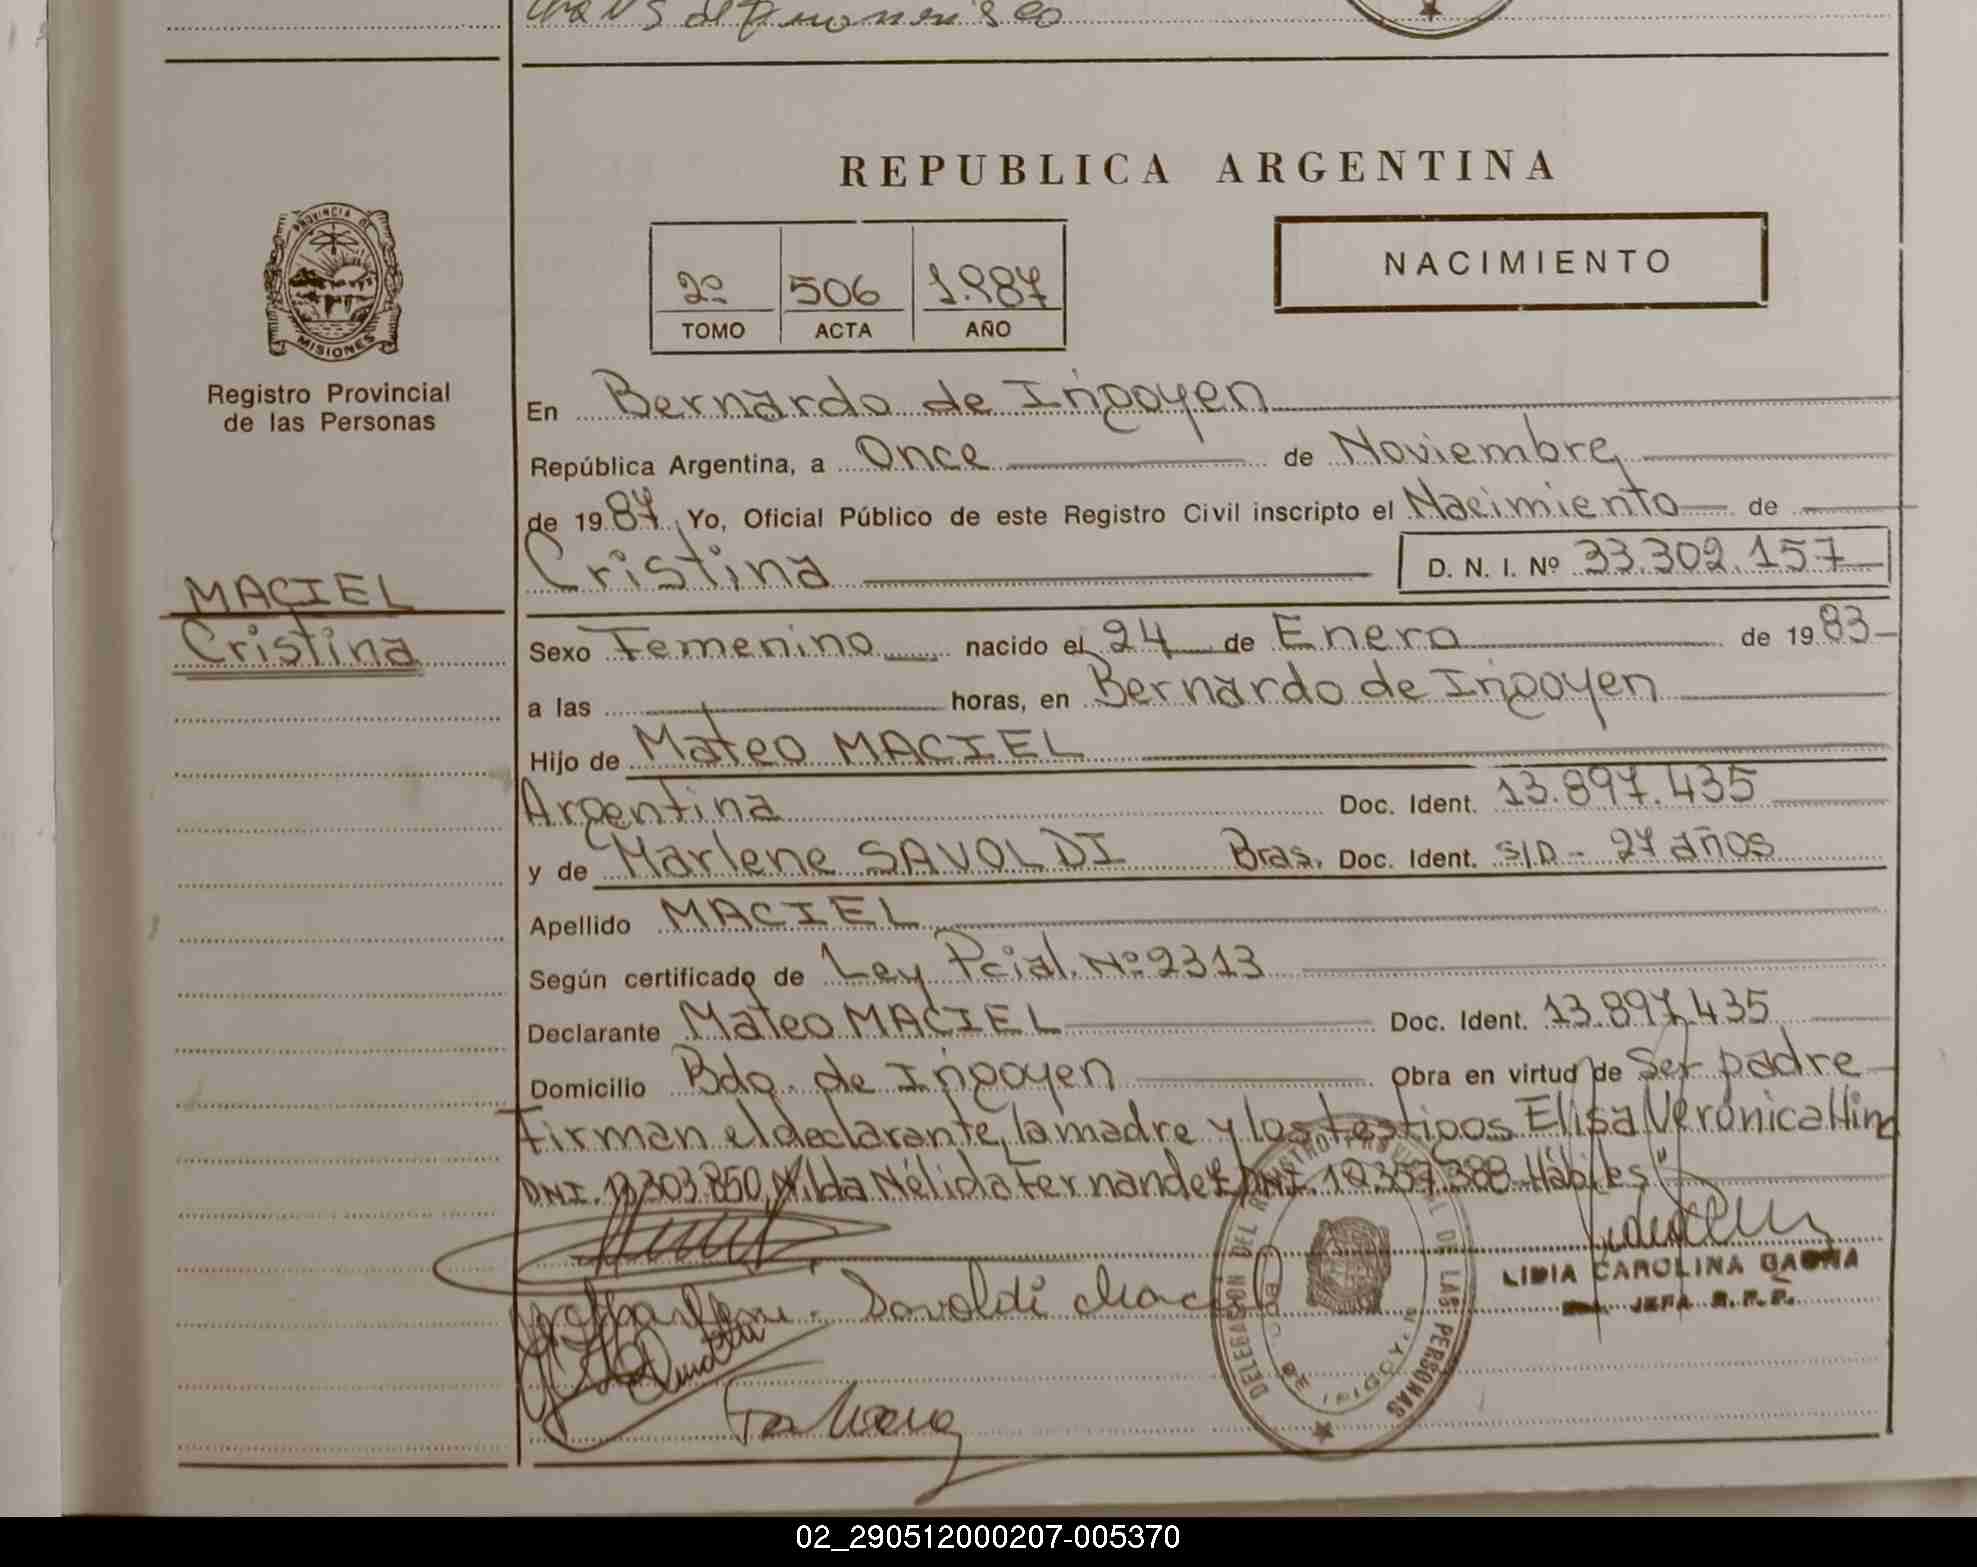 REPUBLICA ARGENTINA
PROVINCIA DE
MISIONES
Registro Provincial
de las Personas
2º 506 1.987
TOMO ACTA AÑO
NACIMIENTO
MACIEL
Cristina
En Bernardo de Irigoyen
República Argentina, a Once de Noviembre
de 1987 Yo, Oficial Público de este Registro Civil inscripto el Nacimiento de
Cristina D. N. I. Nº 33.302.157
Sexo Femenino nacido el 24 de Enero de 1983
a las horas, en Bernardo de Irigoyen
Hijo de Mateo MACIEL
Argentina Doc. Ident. 13.897.435
y de Marlene SAVOLDI Bras. Doc. Ident. S/D - 27 años
Apellido MACIEL
Según certificado de Ley Pcial. Nº 2313
Declarante Mateo MACIEL Doc. Ident. 13.897.435
Domicilio Bdo. de Irigoyen Obra en virtud de Ser padre
Firman el declarante, la madre y los testigos Elisa Verónica Hind
DNI. Nilda Nélida Fernandez DNI. Hábiles
Savoldi Maciel
DELEGACION DEL REGISTRO PROVINCIAL DE LAS PERSONAS
LIDIA CAROLINA GAONA
JEFA R.P.P.
02_290512000207-005370